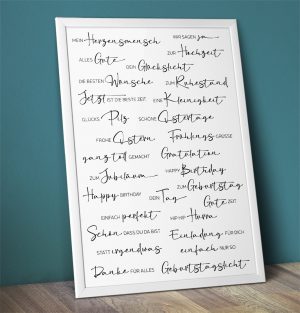 MEIN Herzensmensch WIR SAGEN ja
ALLES Gute ZUR Hochzeit
DEIN Glückslicht
DIE BESTEN Wünsche ZUM Ruhestand
Jetzt IST DIE BESTE ZEIT EINE Kleinigkeit
GLÜCKS Pilz SCHÖNE Ostertage
FROHE Ostern Frühlings GRÜSSE
ganz toll GEMACHT Gratulation
ZUM Jubiläum HAPPY Birthday
Happy BIRTHDAY DEIN Tag ZUM Geburtstag
Gute ZEIT
EINFACH perfekt HIP-HIP Hurra
Schön DASS DU DA BIST Einladung FÜR DICH
STATT irgendwas einfach NUR SO
Danke FÜR ALLES Geburtstagslicht